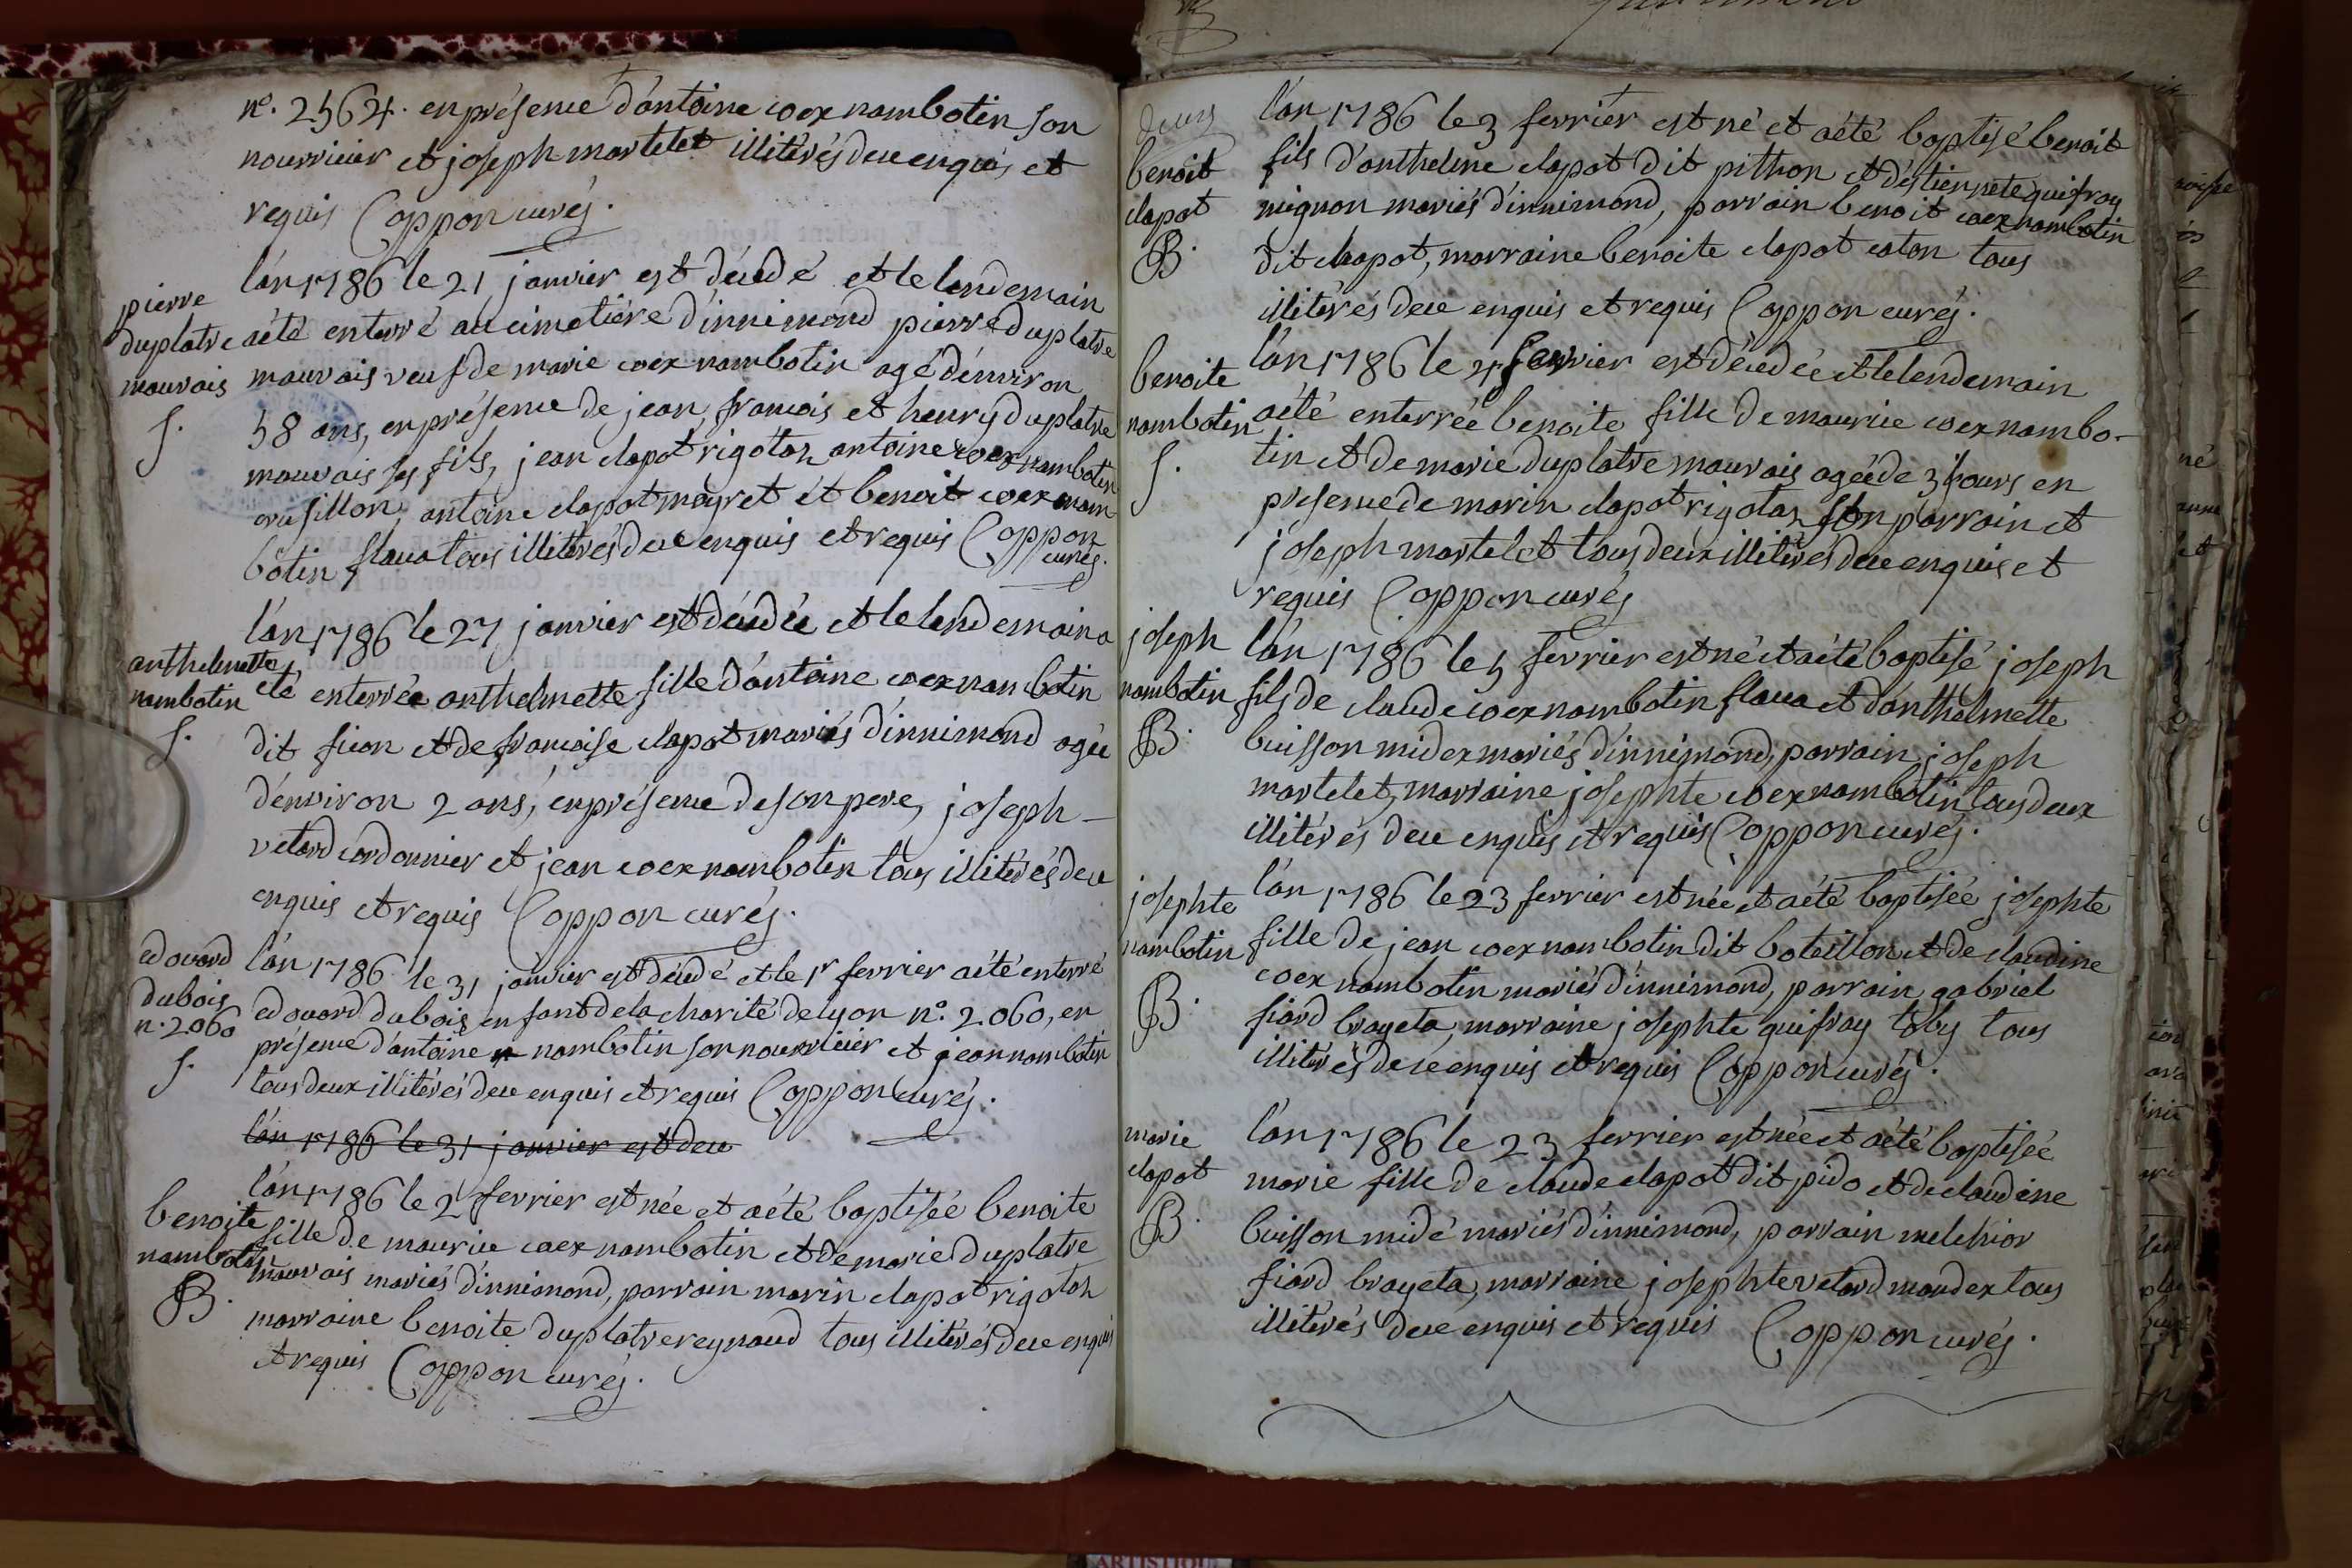 n°. 2562. en présence d'antoine coex nambotin son
nourricier et joseph martelet illitérés de ce enquis et
requis Coppon curé.
pierre
duplatre
mauvais
s.
l'an 1786 le 21 janvier est décédé et le lendemain
a été enterré au cimetière d'innimond pierre duplatre
mauvais veuf de marie coex nambotin agé d'environ
58 ans, en présence de jean, francois et henry duplatre
mauvais ses fils, jean clapot rigotan antoine coex nambotin
crusillon, antoine clapot mayret et benoit coex nam
botin flaua tous illitérés de ce enquis et requis Coppon
curé.
anthelmette
nambotin
s.
l'an 1786 le 27 janvier est décédée et le lendemain a
été enterrée anthelmette, fille d'antoine coex nambotin
dit sion et de francoise clapot mariés d'innimond agée
d'environ 2 ans, en présence de son pere, joseph
vetard cordonnier et jean coex nambotin tous illitérés de ce
enquis et requis Coppon curé.
edouard
dubois
n°. 2060
s.
l'an 1786 le 31 janvier est décédé et le 1r fevrier a été enterré
edouard dubois enfant de la charité de lyon n°. 2060, en
présence d'antoine nambotin son nourricier et jean nambotin
tous deux illitérés de ce enquis et requis Coppon curé.
l'an 1786 le 31 janvier est dece
benoite
nambotin
B.
l'an 1786 le 2 fevrier est née et a été baptisée benoite
fille de maurice coex nambotin et de marie duplatre
mauvais mariés d'innimond, parrain marin clapot rigotan
marraine benoite duplatre reynaud tous illitérés de ce enquis
et requis Coppon curé.
benoit
clapot
B.
l'an 1786 le 3 fevrier est né et a été baptisé benoit
fils d'anthelme clapot dit pithon et d'estiennete quifray
mignon mariés d'innimond, parrain benoit coex nambotin
dit chapot, marraine benoite clapot caton tous
illitérés de ce enquis et requis Coppon curé.
benoite
nambotin
s.
l'an 1786 le 4 fevrier est décédée et le lendemain
a été enterrée benoite fille de maurice coex nambo-
tin et de marie duplatre mauvais agée de 3 jours en
presence de marin clapot rigotan son parrain et
joseph martelet tous deux illitérés de ce enquis et
requis Coppon curé
joseph
nambotin
B.
l'an 1786 le 5 fevrier est né et a été baptisé joseph
fils de claude coex nambotin flaua et d'anthelmette
buisson midex mariés d'innimond, parrain joseph
martelet, marraine josephte coex nambotin tous deux
illitérés de ce enquis et requis Coppon curé.
josephte
nambotin
B.
l'an 1786 le 23 fevrier est née et a été baptisée josephte
fille de jean coex nambotin dit boteillon et de claudine
coex nambotin mariés d'innimond, parrain gabriel
fiard brayeta, marraine josephte quifray toby tous
illitérés de ce enquis et requis Coppon curé.
marie
clapot
B.
l'an 1786 le 23 fevrier est née et a été baptisée
marie fille de claude clapot dit pido et de claudine
buisson midé mariés d'innimond, parrain melchior
fiard brayeta, marraine josephte vetard mandex tous
illitérés de ce enquis et requis Coppon curé.
ARTISTIQUE